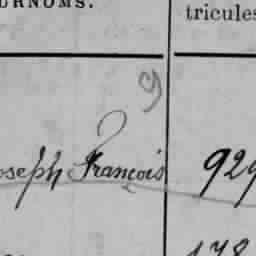 URNOMS.
tricules
9
oseph François 929
178